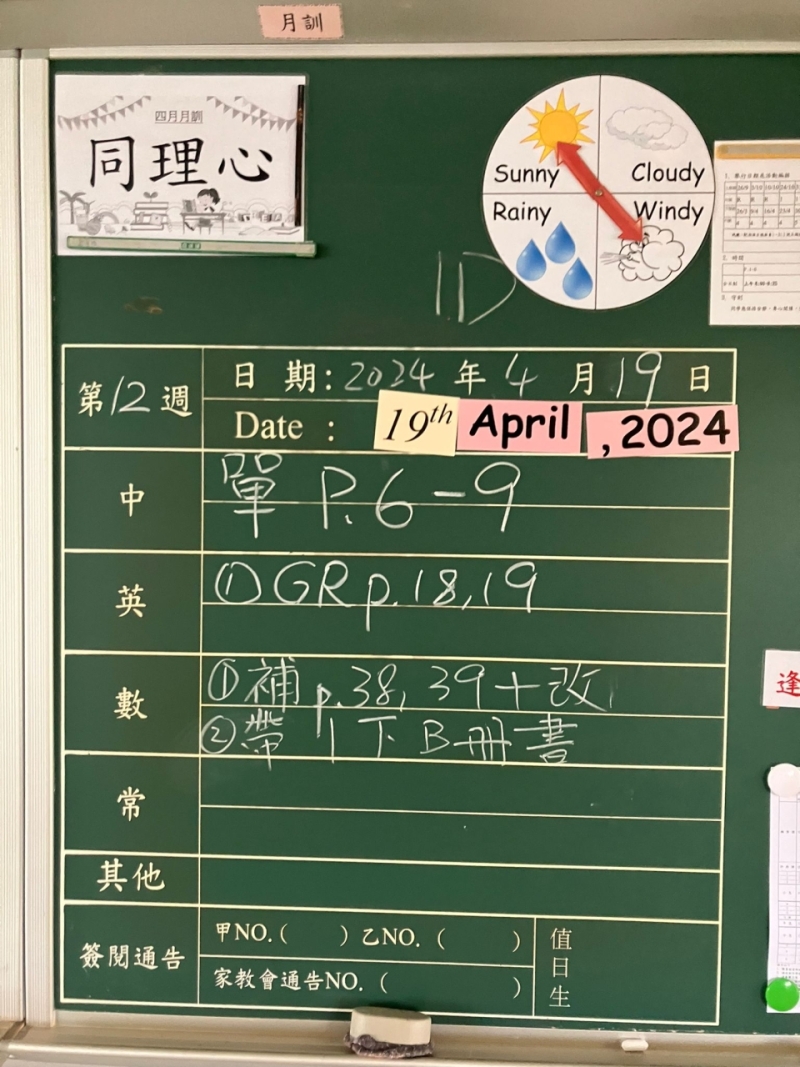 月訓
四月月訓
同理心
Sunny
Cloudy
Rainy
Windy
1D
第12週
日期：2024年4月19日
Date : 19th April , 2024
中
單 P.6-9
英
① GR p.18,19
數
① 補 p.38, 39 + 改
② 帶 1下B冊書
常
其他
簽閱通告
甲NO.( ) 乙NO. ( )
家教會通告NO. ( )
值日生
逢